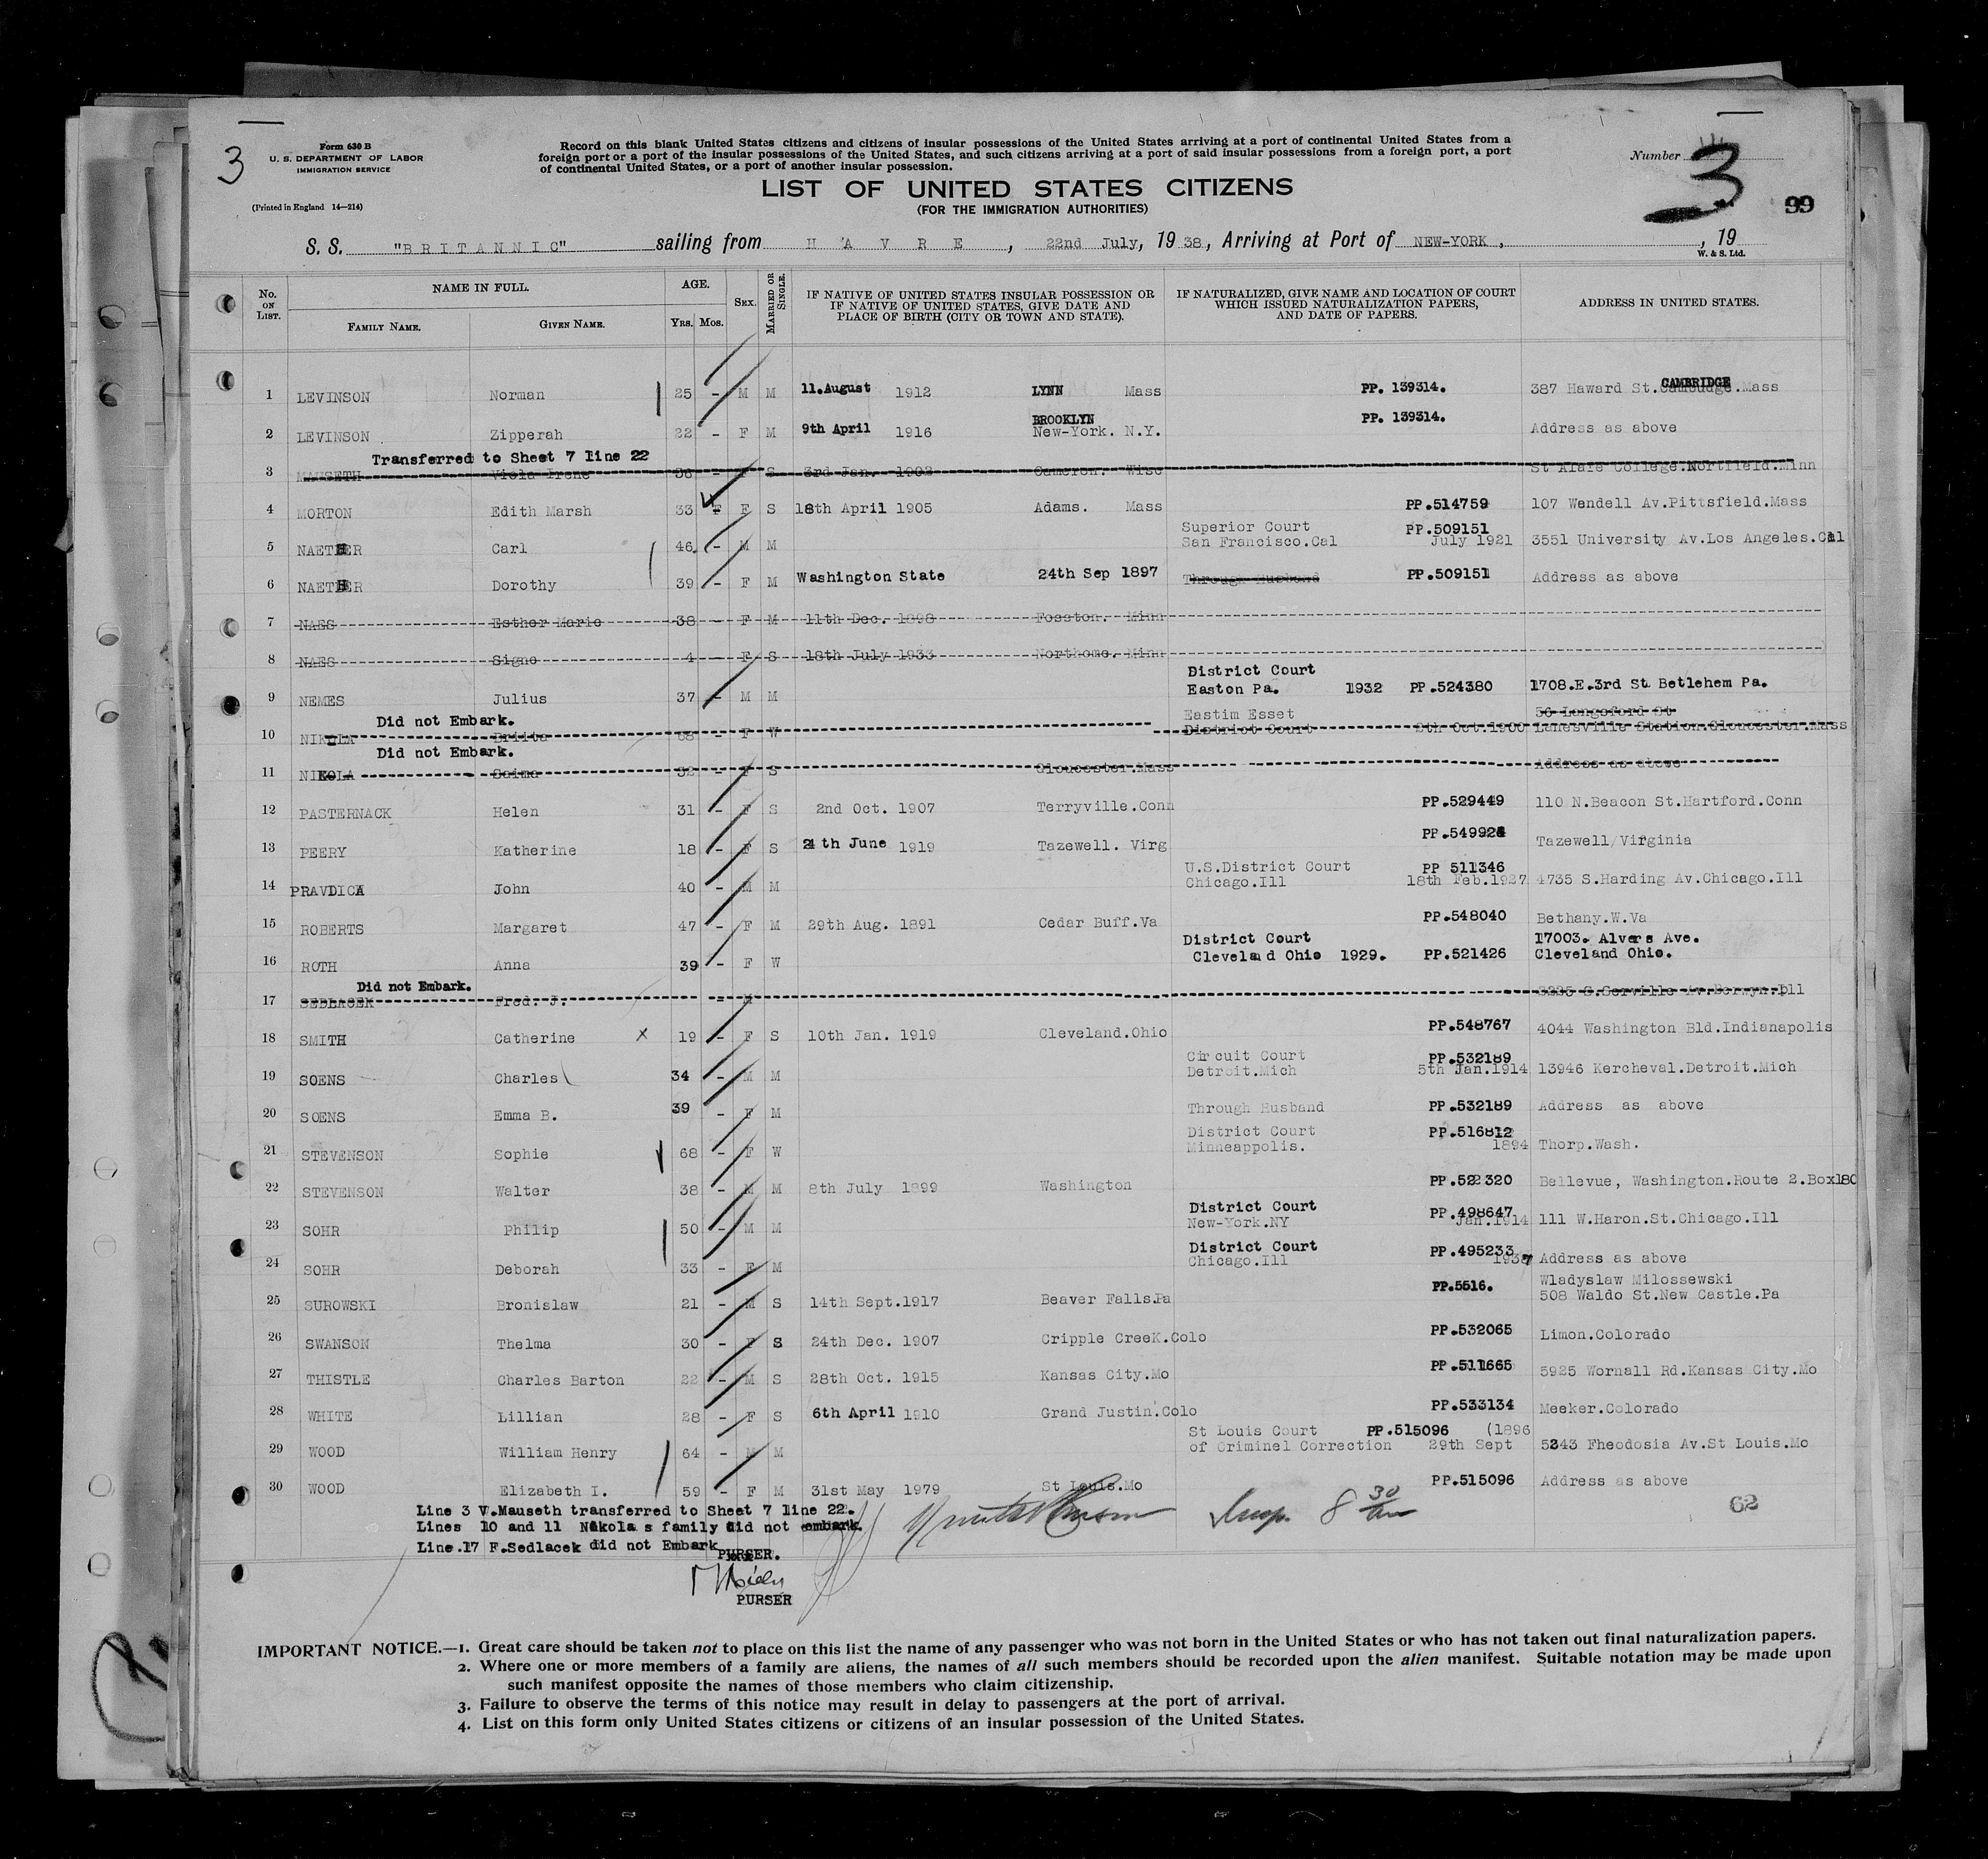 3
Form 630 B
U. S. DEPARTMENT OF LABOR
IMMIGRATION SERVICE
(Printed in England 14—214)
Record on this blank United States citizens and citizens of insular possessions of the United States arriving at a port of continental United States from a
foreign port or a port of the insular possessions of the United States, and such citizens arriving at a port of said insular possessions from a foreign port, a port
of continental United States, or a port of another insular possession.
LIST OF UNITED STATES CITIZENS
(FOR THE IMMIGRATION AUTHORITIES)
Number 3
99
S. S. "BRITANNIC" sailing from HAVRE, 22nd July, 1938, Arriving at Port of NEW-YORK, , 19
W. & S. Ltd.
No. ON LIST. NAME IN FULL. FAMILY NAME. GIVEN NAME. AGE. YRS. MOS. SEX. MARRIED OR SINGLE. IF NATIVE OF UNITED STATES INSULAR POSSESSION OR IF NATIVE OF UNITED STATES, GIVE DATE AND PLACE OF BIRTH (CITY OR TOWN AND STATE). IF NATURALIZED, GIVE NAME AND LOCATION OF COURT WHICH ISSUED NATURALIZATION PAPERS, AND DATE OF PAPERS. ADDRESS IN UNITED STATES.
1 LEVINSON Norman 25 - M M 11.August 1912 LYNN Mass PP. 139314. 387 Haward St. CAMBRIDGE .Mass
BROOKLYN
2 LEVINSON Zipperah 22 - F M 9th April 1916 New-York. N.Y. PP. 139314. Address as above
Transferred to Sheet 7 line 22
3 MAUSETH Viola Irene 36 - F S 3rd Jan. 1902 Cameron. Wisc College.Nortfield.Minn
4 MORTON Edith Marsh 33 F F S 18th April 1905 Adams. Mass PP.514759 107 Wendell Av.Pittsfield.Mass
Superior Court PP.509151
5 NAETHER Carl 46 - M M San Francisco.Cal July 1921 3551 University Av.Los Angeles.Cal
6 NAETHER Dorothy 39 - F M Washington State 24th Sep 1897 Through Husband PP.509151 Address as above
7 NASS Esther Marie 38 - F M 11th Dec. 1898 Fosston. Minn
8 NAES Signe 4 - F S 18th July 1933 Northome. Minn
District Court
9 NEMES Julius 37 - M M Easton Pa. 1932 PP.524380 1708.E.3rd St Betlehem Pa.
Did not Embark. Eastim Esset 56 Langsford St
10 NIKOLA 68 - F W District Court 8th Oct.1900 Lanesville Station.Gloucester.Mass
Did not Embark.
11 NIKOLA Saima 32 - F S Gloucester.Mass Address as above
12 PASTERNACK Helen 31 - F S 2nd Oct. 1907 Terryville.Conn PP.529449 110 N.Beacon St.Hartford.Conn
13 PEERY Katherine 18 - F S 24th June 1919 Tazewell. Virg Tazewell/Virginia
U.S.District Court PP 511346
14 PRAVDICA John 40 - M M Chicago.Ill 18th Feb.1927 4735 S.Harding Av.Chicago.Ill
15 ROBERTS Margaret 47 - F M 29th Aug. 1891 Cedar Buff.Va PP.548040 Bethany.W.Va
District Court 17003. Alvers Ave.
16 ROTH Anna 39 - F W Cleveland Ohio 1929. PP.521426 Cleveland Ohio.
Did not Embark.
17 SEDLACEK Fred. J. - M Av.Berwyn.Ill
18 SMITH Catherine X 19 - F S 10th Jan. 1919 Cleveland.Ohio PP.548767 4044 Washington Bld.Indianapolis
Circuit Court PP.532189
19 SOENS Charles 34 - M M Detroit.Mich 5th Jan.1914 13946 Kercheval.Detroit.Mich
20 SOENS Emma B. 39 - F M Through Husband PP.532189 Address as above
District Court PP.516812
21 STEVENSON Sophie 68 - F W Minneappolis. 1894 Thorp.Wash.
22 STEVENSON Walter 38 - M M 8th July 1899 Washington PP.522320 Bellevue, Washington.Route 2.Box180
District Court PP.498647
23 SOHR Philip 50 - M M New-York.NY Jan.1914 111 W.Haron.St.Chicago.Ill
District Court PP.495233
24 SOHR Deborah 33 - F M Chicago.Ill 1937 Address as above
Wladyslaw Milossewski
25 SUROWSKI Bronislaw 21 - M S 14th Sept.1917 Beaver Falls.Pa PP.5516. 508 Waldo St.New Castle.Pa
26 SWANSON Thelma 30 - F S 24th Dec. 1907 Cripple CreeK.Colo PP.532065 Limon.Colorado
27 THISTLE Charles Barton 22 - M S 28th Oct. 1915 Kansas City.Mo PP.511665 5925 Wornall Rd.Kansas City.Mo
28 WHITE Lillian 28 - F S 6th April 1910 Grand Justin.Colo PP.533134 Meeker.Colorado
St Louis Court PP.515096 (1896
29 WOOD William Henry 64 - M M of Criminel Correction 29th Sept 5343 Fheodosia Av.St Louis.Mo
30 WOOD Elizabeth I. 59 - F M 31st May 1979 St Louis.Mo PP.515096 Address as above
Line 3 V.Mauseth transferred to Sheet 7 line 22.
Lines 10 and 11 Nikola s family did not embark.
Line.17 F.Sedlacek did not Embark
Insp. 8 30
62
PURSER.
PURSER
IMPORTANT NOTICE.—1. Great care should be taken not to place on this list the name of any passenger who was not born in the United States or who has not taken out final naturalization papers.
2. Where one or more members of a family are aliens, the names of all such members should be recorded upon the alien manifest. Suitable notation may be made upon
such manifest opposite the names of those members who claim citizenship.
3. Failure to observe the terms of this notice may result in delay to passengers at the port of arrival.
4. List on this form only United States citizens or citizens of an insular possession of the United States.